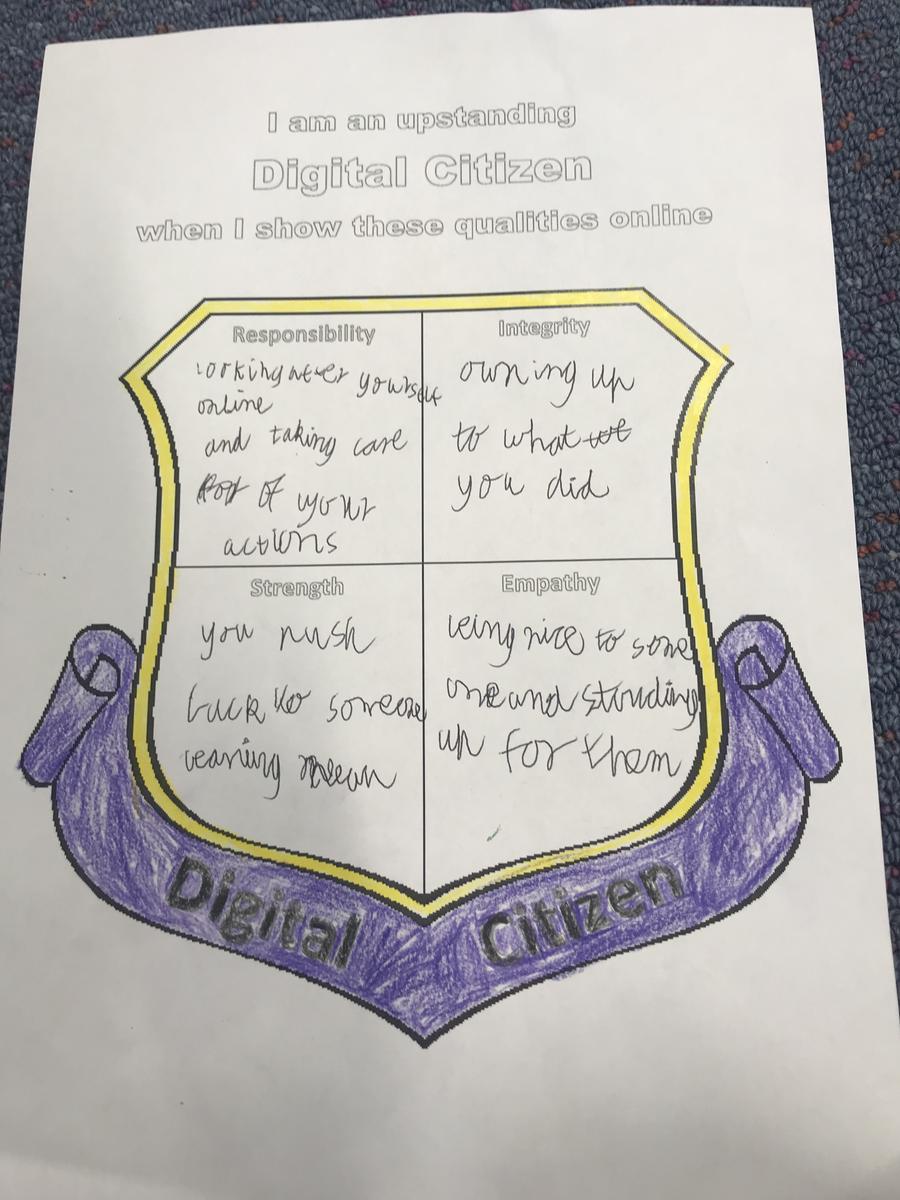 I am an upstanding
Digital Citizen
when I show these qualities online
Responsibility
Looking after yourself
online
and taking care
of your
actions
Integrity
owning up
to what we
you did
Strength
you push
back to someone
being mean
Empathy
being nice to some
one and standing
up for them
Digital Citizen